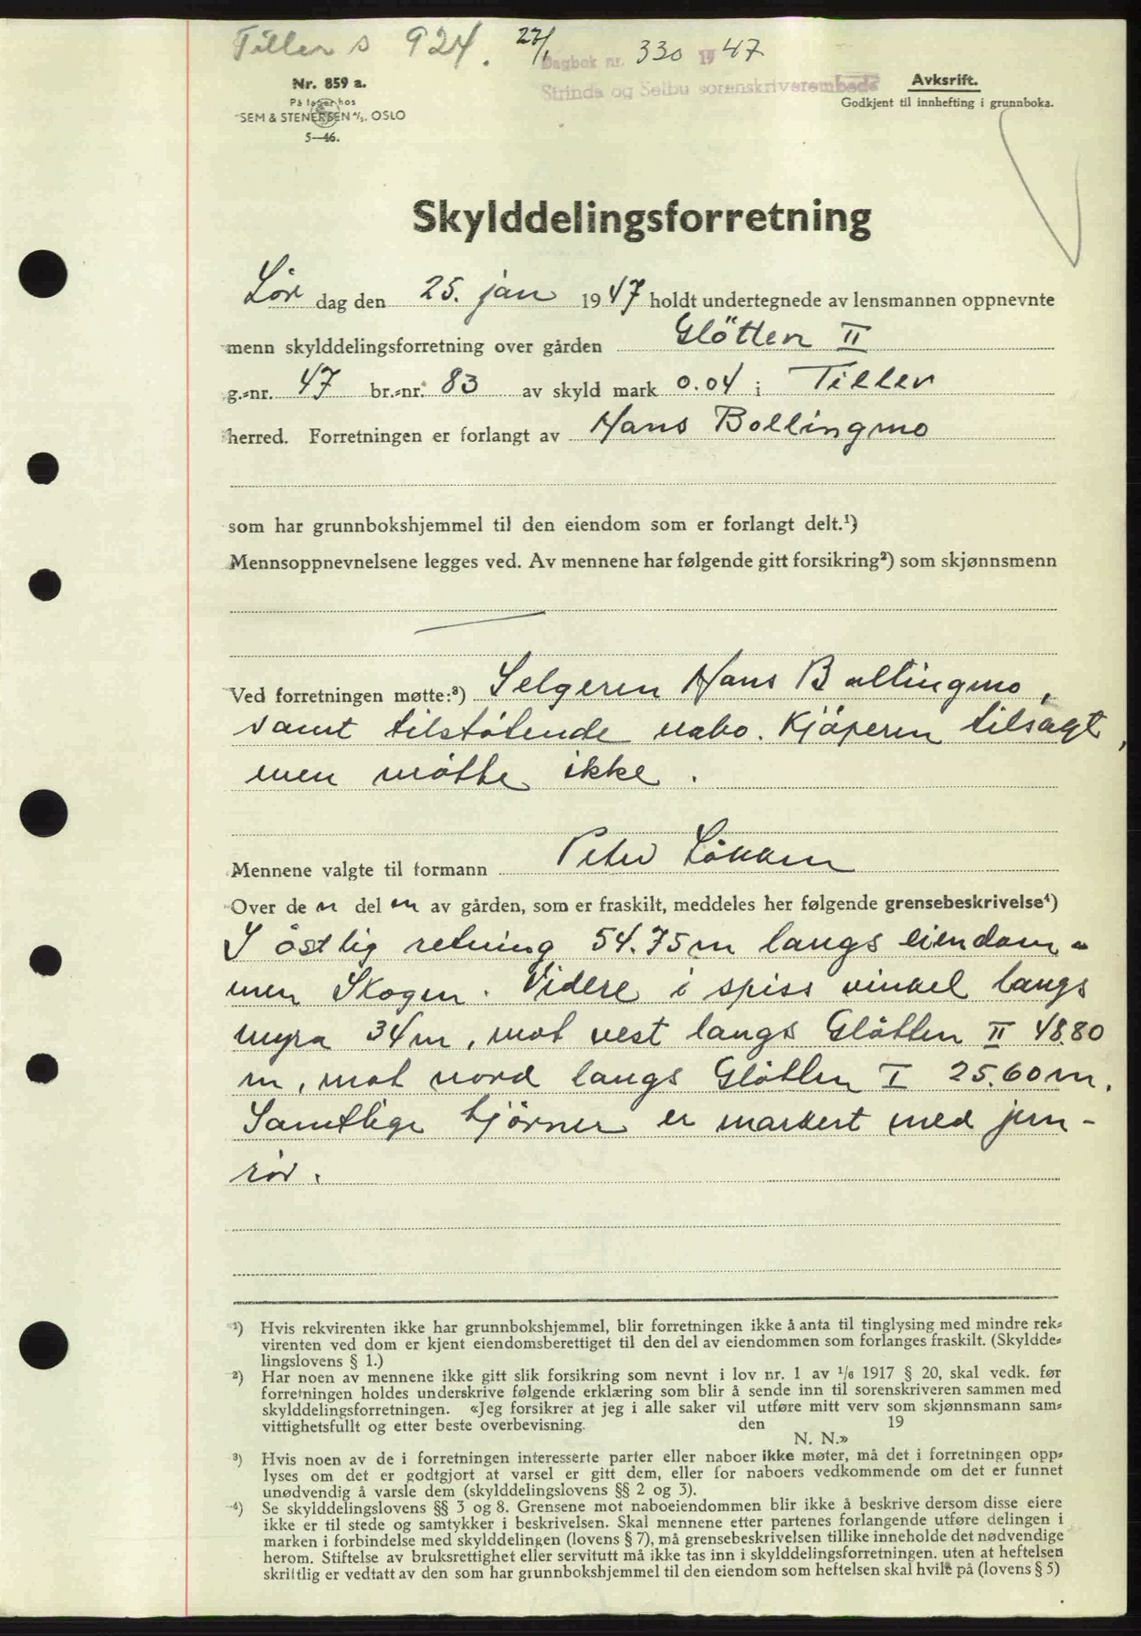 Tiller s 924. 27/1 Dagbok nr. 330 1947
Strinda og Selbu sorenskriverembede
Nr. 859 a.
På lager hos
SEM & STENERSEN A/S. OSLO
5-46.
Avksrift.
Godkjent til innhefting i grunnboka.
Skylddelingsforretning
Lör dag den 25. jan 1947 holdt undertegnede av lensmannen oppnevnte
menn skylddelingsforretning over gården Glötten II
g.-nr. 47 br.-nr. 83 av skyld mark 0.04 i Tiller
herred. Forretningen er forlangt av Hans Bollingmo
som har grunnbokshjemmel til den eiendom som er forlangt delt.¹)
Mennsoppnevnelsene legges ved. Av mennene har følgende gitt forsikring²) som skjønnsmenn
Ved forretningen møtte:³) Selgeren Hans Bollingmo,
samt tilstötende nabo. Kjöperen tilsagt,
men mötte ikke.
Mennene valgte til formann Peter Lökken
Over de n del en av gården, som er fraskilt, meddeles her følgende grensebeskrivelse⁴)
I östlig retning 54.75 m langs eiendom-
men Skogen. Videre i spiss vinkel langs
myra 34 m, mot vest langs Glötten II 48.80
m, mot nord langs Glötten I 25.60 m.
Samtlige hjörner er markert med jern-
rör.
¹) Hvis rekvirenten ikke har grunnbokshjemmel, blir forretningen ikke å anta til tinglysing med mindre rek-
virenten ved dom er kjent eiendomsberettiget til den del av eiendommen som forlanges fraskilt. (Skyldde-
lingslovens § 1.)
²) Har noen av mennene ikke gitt slik forsikring som nevnt i lov nr. 1 av 1/6 1917 § 20, skal vedk. før
forretningen holdes underskrive følgende erklæring som blir å sende inn til sorenskriveren sammen med
skylddelingsforretningen. «Jeg forsikrer at jeg i alle saker vil utføre mitt verv som skjønnsmann sam-
vittighetsfullt og etter beste overbevisning. den 19
N. N.»
³) Hvis noen av de i forretningen interesserte parter eller naboer ikke møter, må det i forretningen opp-
lyses om det er godtgjort at varsel er gitt dem, eller for naboers vedkommende om det er funnet
unødvendig å varsle dem (skylddelingslovens §§ 2 og 3).
⁴) Se skylddelingslovens §§ 3 og 8. Grensene mot naboeiendommen blir ikke å beskrive dersom disse eiere
ikke er til stede og samtykker i beskrivelsen. Skal mennene etter partenes forlangende utføre delingen i
marken i forbindelse med skylddelingen (lovens § 7), må grensebeskrivelsen tillike inneholde det nødvendige
herom. Stiftelse av bruksrettighet eller servitutt må ikke tas inn i skylddelingsforretningen, uten at heftelsen
skriftlig er vedtatt av den som har grunnbokshjemmel til den eiendom som heftelsen skal hvile på (lovens § 5)